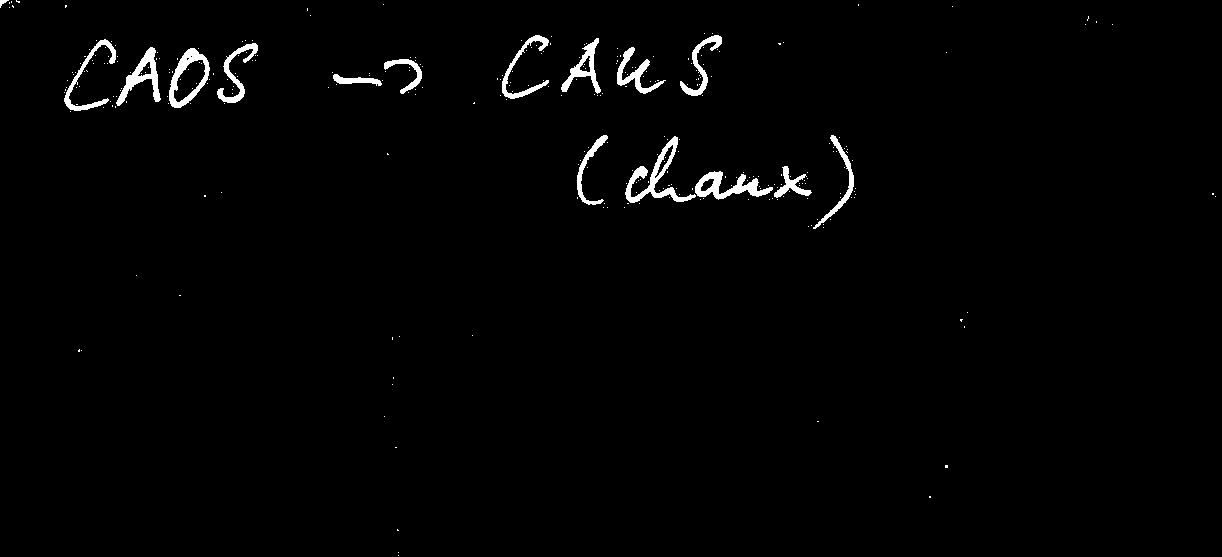 CAOS → CAUS
(chaux)